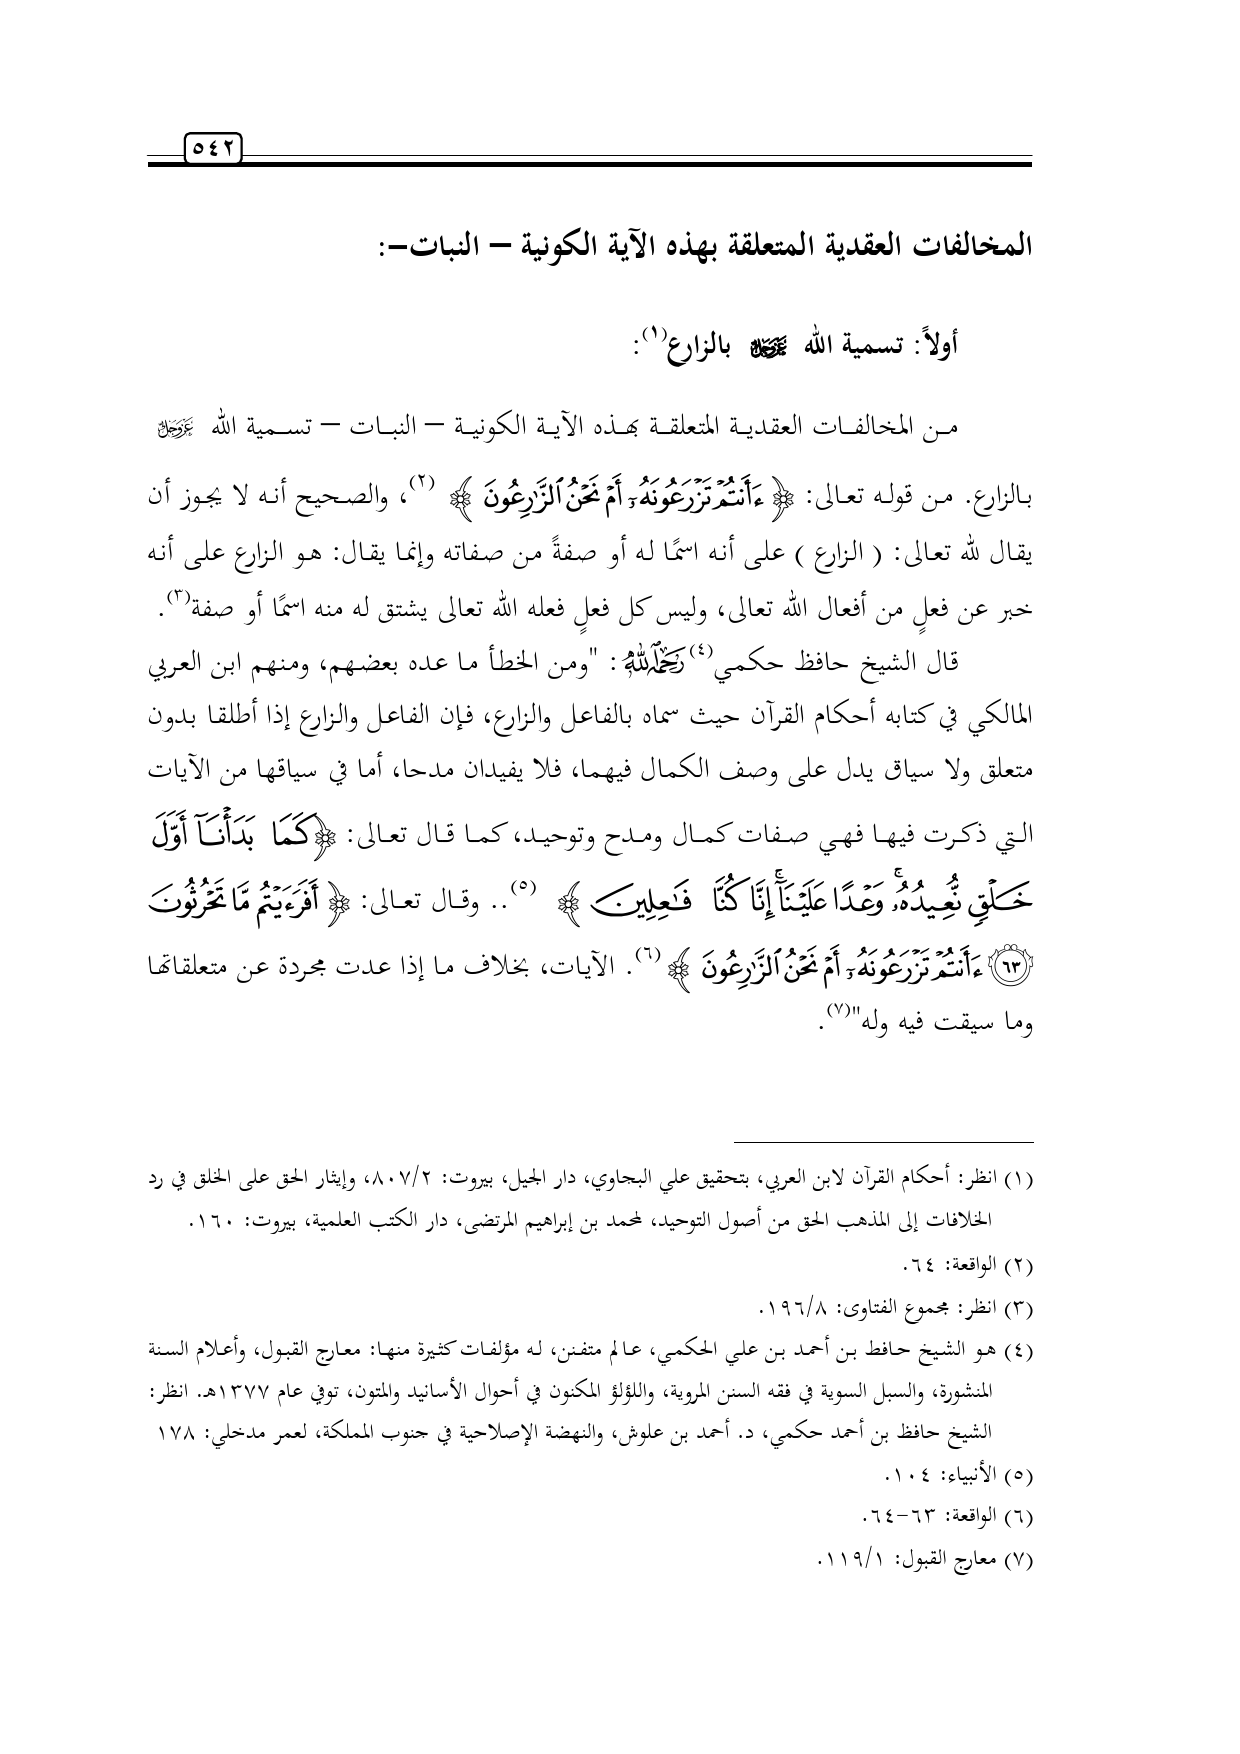 ٥٤٢
المخالفات العقدية المتعلقة بهذه الآية الكونية – النبات–:
أولاً: تسمية الله عَزَّوَجَلَّ بالزارع(١):
من المخالفات العقدية المتعلقة بهذه الآية الكونية – النبات – تسمية الله عَزَّوَجَلَّ
بالزارع. من قوله تعالى: ﴿ ءَأَنتُمْ تَزْرَعُونَهُۥٓ أَمْ نَحْنُ ٱلزَّٰرِعُونَ ﴾ (٢)، والصحيح أنه لا يجوز أن
يقال لله تعالى: ( الزارع ) على أنه اسمًا له أو صفةً من صفاته وإنما يقال: هو الزارع على أنه
خبر عن فعلٍ من أفعال الله تعالى، وليس كل فعلٍ فعله الله تعالى يشتق له منه اسمًا أو صفة(٣).
قال الشيخ حافظ حكمي(٤) رَحِمَهُ ٱللَّهُ : "ومن الخطأ ما عده بعضهم، ومنهم ابن العربي
المالكي في كتابه أحكام القرآن حيث سماه بالفاعل والزارع، فإن الفاعل والزارع إذا أطلقا بدون
متعلق ولا سياق يدل على وصف الكمال فيهما، فلا يفيدان مدحا، أما في سياقها من الآيات
التي ذكرت فيها فهي صفات كمال ومدح وتوحيد، كما قال تعالى: ﴿كَمَا بَدَأْنَآ أَوَّلَ
خَلْقٍ نُّعِيدُهُۥ ۚ وَعْدًا عَلَيْنَآ ۚ إِنَّا كُنَّا فَٰعِلِينَ ﴾ (٥).. وقال تعالى: ﴿ أَفَرَءَيْتُم مَّا تَحْرُثُونَ
٦٣ ءَأَنتُمْ تَزْرَعُونَهُۥٓ أَمْ نَحْنُ ٱلزَّٰرِعُونَ ﴾ (٦). الآيات، بخلاف ما إذا عدت مجردة عن متعلقاتها
وما سيقت فيه وله"(٧).
(١) انظر: أحكام القرآن لابن العربي، بتحقيق علي البجاوي، دار الجيل، بيروت: ٨٠٧/٢، وإيثار الحق على الخلق في رد
الخلافات إلى المذهب الحق من أصول التوحيد، لمحمد بن إبراهيم المرتضى، دار الكتب العلمية، بيروت: ١٦٠.
(٢) الواقعة: ٦٤.
(٣) انظر: مجموع الفتاوى: ١٩٦/٨.
(٤) هو الشيخ حافط بن أحمد بن علي الحكمي، عالم متفنن، له مؤلفات كثيرة منها: معارج القبول، وأعلام السنة
المنشورة، والسبل السوية في فقه السنن المروية، واللؤلؤ المكنون في أحوال الأسانيد والمتون، توفي عام ١٣٧٧هـ. انظر:
الشيخ حافظ بن أحمد حكمي، د. أحمد بن علوش، والنهضة الإصلاحية في جنوب المملكة، لعمر مدخلي: ١٧٨
(٥) الأنبياء: ١٠٤.
(٦) الواقعة: ٦٣–٦٤.
(٧) معارج القبول: ١١٩/١.